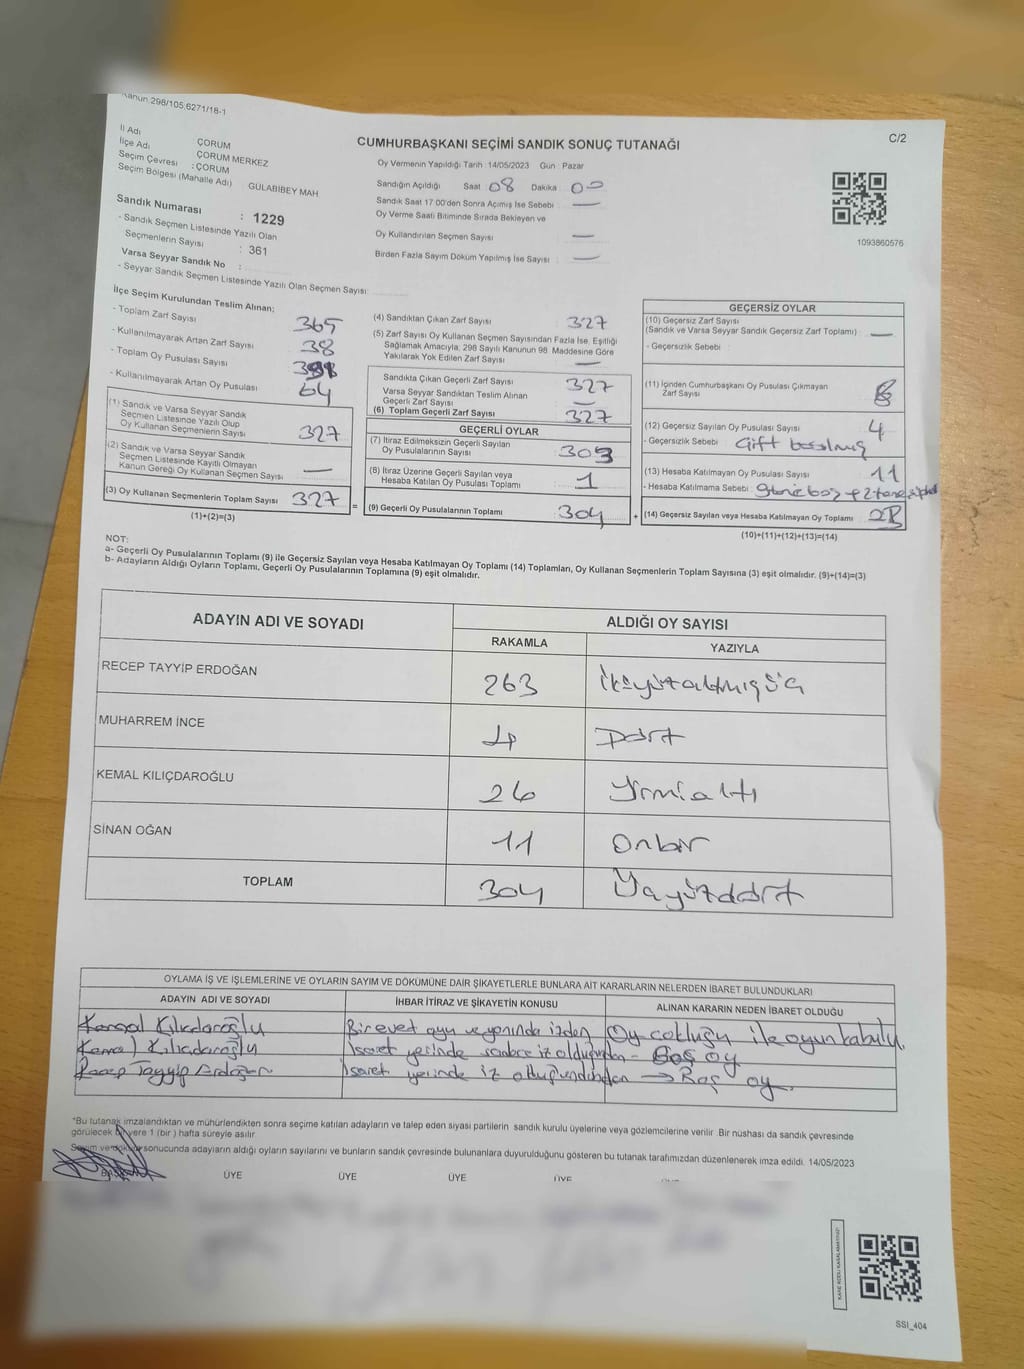 Kanun 298/105;6271/18-1
C/2
CUMHURBAŞKANI SEÇİMİ SANDIK SONUÇ TUTANAĞI
İl Adı ÇORUM
İlçe Adı ÇORUM MERKEZ
Seçim Çevresi : ÇORUM
Seçim Bölgesi (Mahalle Adı) GÜLABİBEY MAH
Sandık Numarası : 1229
- Sandık Seçmen Listesinde Yazılı Olan
Seçmenlerin Sayısı : 361
Varsa Seyyar Sandık No :
- Seyyar Sandık Seçmen Listesinde Yazılı Olan Seçmen Sayısı:
Oy Vermenin Yapıldığı Tarih :14/05/2023 Gün : Pazar
Sandığın Açıldığı Saat 08 Dakika 00
Sandık Saat 17.00'den Sonra Açımış İse Sebebi —
Oy Verme Saati Bitiminde Sırada Bekleyen ve
Oy Kullandırılan Seçmen Sayısı —
Birden Fazla Sayım Döküm Yapılmış İse Sayısı —
1093860576
İlçe Seçim Kurulundan Teslim Alınan:
- Toplam Zarf Sayısı 365
- Kullanılmayarak Artan Zarf Sayısı 38
- Toplam Oy Pusulası Sayısı
- Kullanılmayarak Artan Oy Pusulası 64
(1) Sandık ve Varsa Seyyar Sandık
Seçmen Listesinde Yazılı Olup
Oy Kullanan Seçmenlerin Sayısı 327
(2) Sandık ve Varsa Seyyar Sandık
Seçmen Listesinde Kayıtlı Olmayan
Kanun Gereği Oy Kullanan Seçmen Sayısı —
(3) Oy Kullanan Seçmenlerin Toplam Sayısı 327
(1)+(2)=(3)
(4) Sandıktan Çıkan Zarf Sayısı 327
(5) Zarf Sayısı Oy Kullanan Seçmen Sayısından Fazla İse, Eşitliği
Sağlamak Amacıyla; 298 Sayılı Kanunun 98. Maddesine Göre
Yakılarak Yok Edilen Zarf Sayısı —
Sandıkta Çıkan Geçerli Zarf Sayısı 327
Varsa Seyyar Sandıktan Teslim Alınan
Geçerli Zarf Sayısı —
(6) Toplam Geçerli Zarf Sayısı 327
GEÇERLİ OYLAR
(7) İtiraz Edilmeksizin Geçerli Sayılan
Oy Pusulalarının Sayısı 303
(8) İtiraz Üzerine Geçerli Sayılan veya
Hesaba Katılan Oy Pusulası Toplamı 1
= (9) Geçerli Oy Pusulalarının Toplamı 304 +
GEÇERSİZ OYLAR
(10) Geçersiz Zarf Sayısı
(Sandık ve Varsa Seyyar Sandık Geçersiz Zarf Toplamı) : —
- Geçersizlik Sebebi :
(11) İçinden Cumhurbaşkanı Oy Pusulası Çıkmayan
Zarf Sayısı
(12) Geçersiz Sayılan Oy Pusulası Sayısı 4
- Geçersizlik Sebebi : Çift basılmış
(13) Hesaba Katılmayan Oy Pusulası Sayısı 11
- Hesaba Katılmama Sebebi :
(14) Geçersiz Sayılan veya Hesaba Katılmayan Oy Toplamı
(10)+(11)+(12)+(13)=(14)
NOT:
a- Geçerli Oy Pusulalarının Toplamı (9) ile Geçersiz Sayılan veya Hesaba Katılmayan Oy Toplamı (14) Toplamları, Oy Kullanan Seçmenlerin Toplam Sayısına (3) eşit olmalıdır. (9)+(14)=(3)
b- Adayların Aldığı Oyların Toplamı, Geçerli Oy Pusulalarının Toplamına (9) eşit olmalıdır.
ADAYIN ADI VE SOYADI ALDIĞI OY SAYISI
RAKAMLA YAZIYLA
RECEP TAYYİP ERDOĞAN 263 İkiyüzaltmışüç
MUHARREM İNCE 4 Dört
KEMAL KILIÇDAROĞLU 26 Yirmialtı
SİNAN OĞAN 11 Onbir
TOPLAM 304
OYLAMA İŞ VE İŞLEMLERİNE VE OYLARIN SAYIM VE DÖKÜMÜNE DAİR ŞİKAYETLERLE BUNLARA AİT KARARLARIN NELERDEN İBARET BULUNDUKLARI
ADAYIN ADI VE SOYADI İHBAR İTİRAZ VE ŞİKAYETİN KONUSU ALINAN KARARIN NEDEN İBARET OLDUĞU
Kemal Kılıçdaroğlu Bir evet oyu ve yanında izden Oy çokluğu ile oyun kabulü.
Kemal Kılıçdaroğlu İşaret yerinde sadece iz olduğundan - Boş oy
Recep Tayyip Erdoğan İşaret yerinde iz olduğundan → Boş oy.
*Bu tutanak imzalandıktan ve mühürlendikten sonra seçime katılan adayların ve talep eden siyasi partilerin sandık kurulu üyelerine veya gözlemcilerine verilir. Bir nüshası da sandık çevresinde
görülecek bir yere 1 (bir) hafta süreyle asılır.
Sayım ve döküm sonucunda adayların aldığı oyların sayılarını ve bunların sandık çevresinde bulunanlara duyurulduğunu gösteren bu tutanak tarafımızdan düzenlenerek imza edildi. 14/05/2023
BAŞKAN ÜYE ÜYE ÜYE ÜYE ÜYE
SSI_404